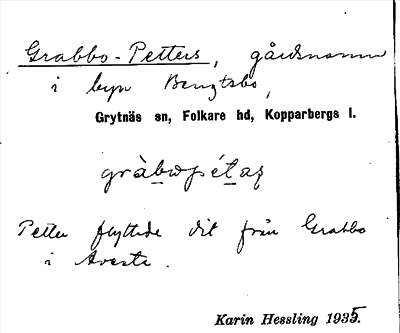 Grabbo-Petters, gårdsnamn
i byn Bengtsbo,
Grytnäs sn, Folkare hd, Kopparbergs l.
Petter flyttade dit från Grabbo
i Avesta.
Karin Hessling 1935.